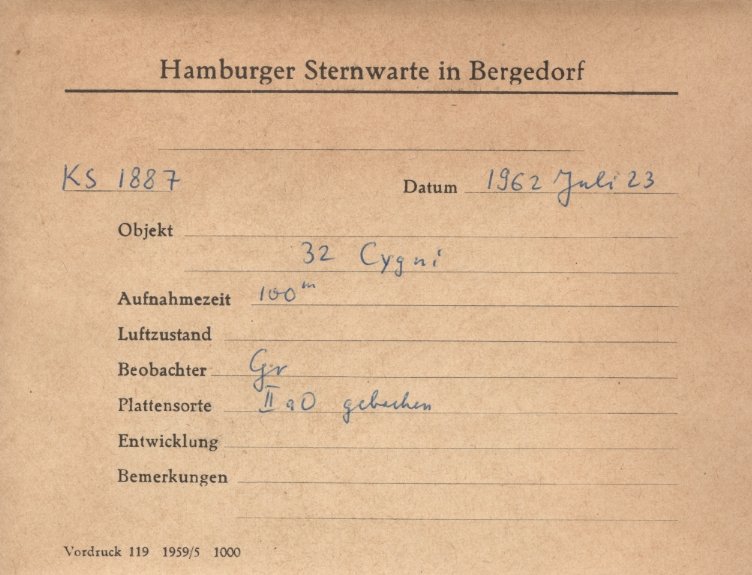 Hamburger Sternwarte in Bergedorf
KS 1887 Datum 1962 Juli 23
Objekt
32 Cygni
Aufnahmezeit 100m
Luftzustand
Beobachter Gr
Plattensorte II aO gebacken
Entwicklung
Bemerkungen
Vordruck 119 1959/5 1000